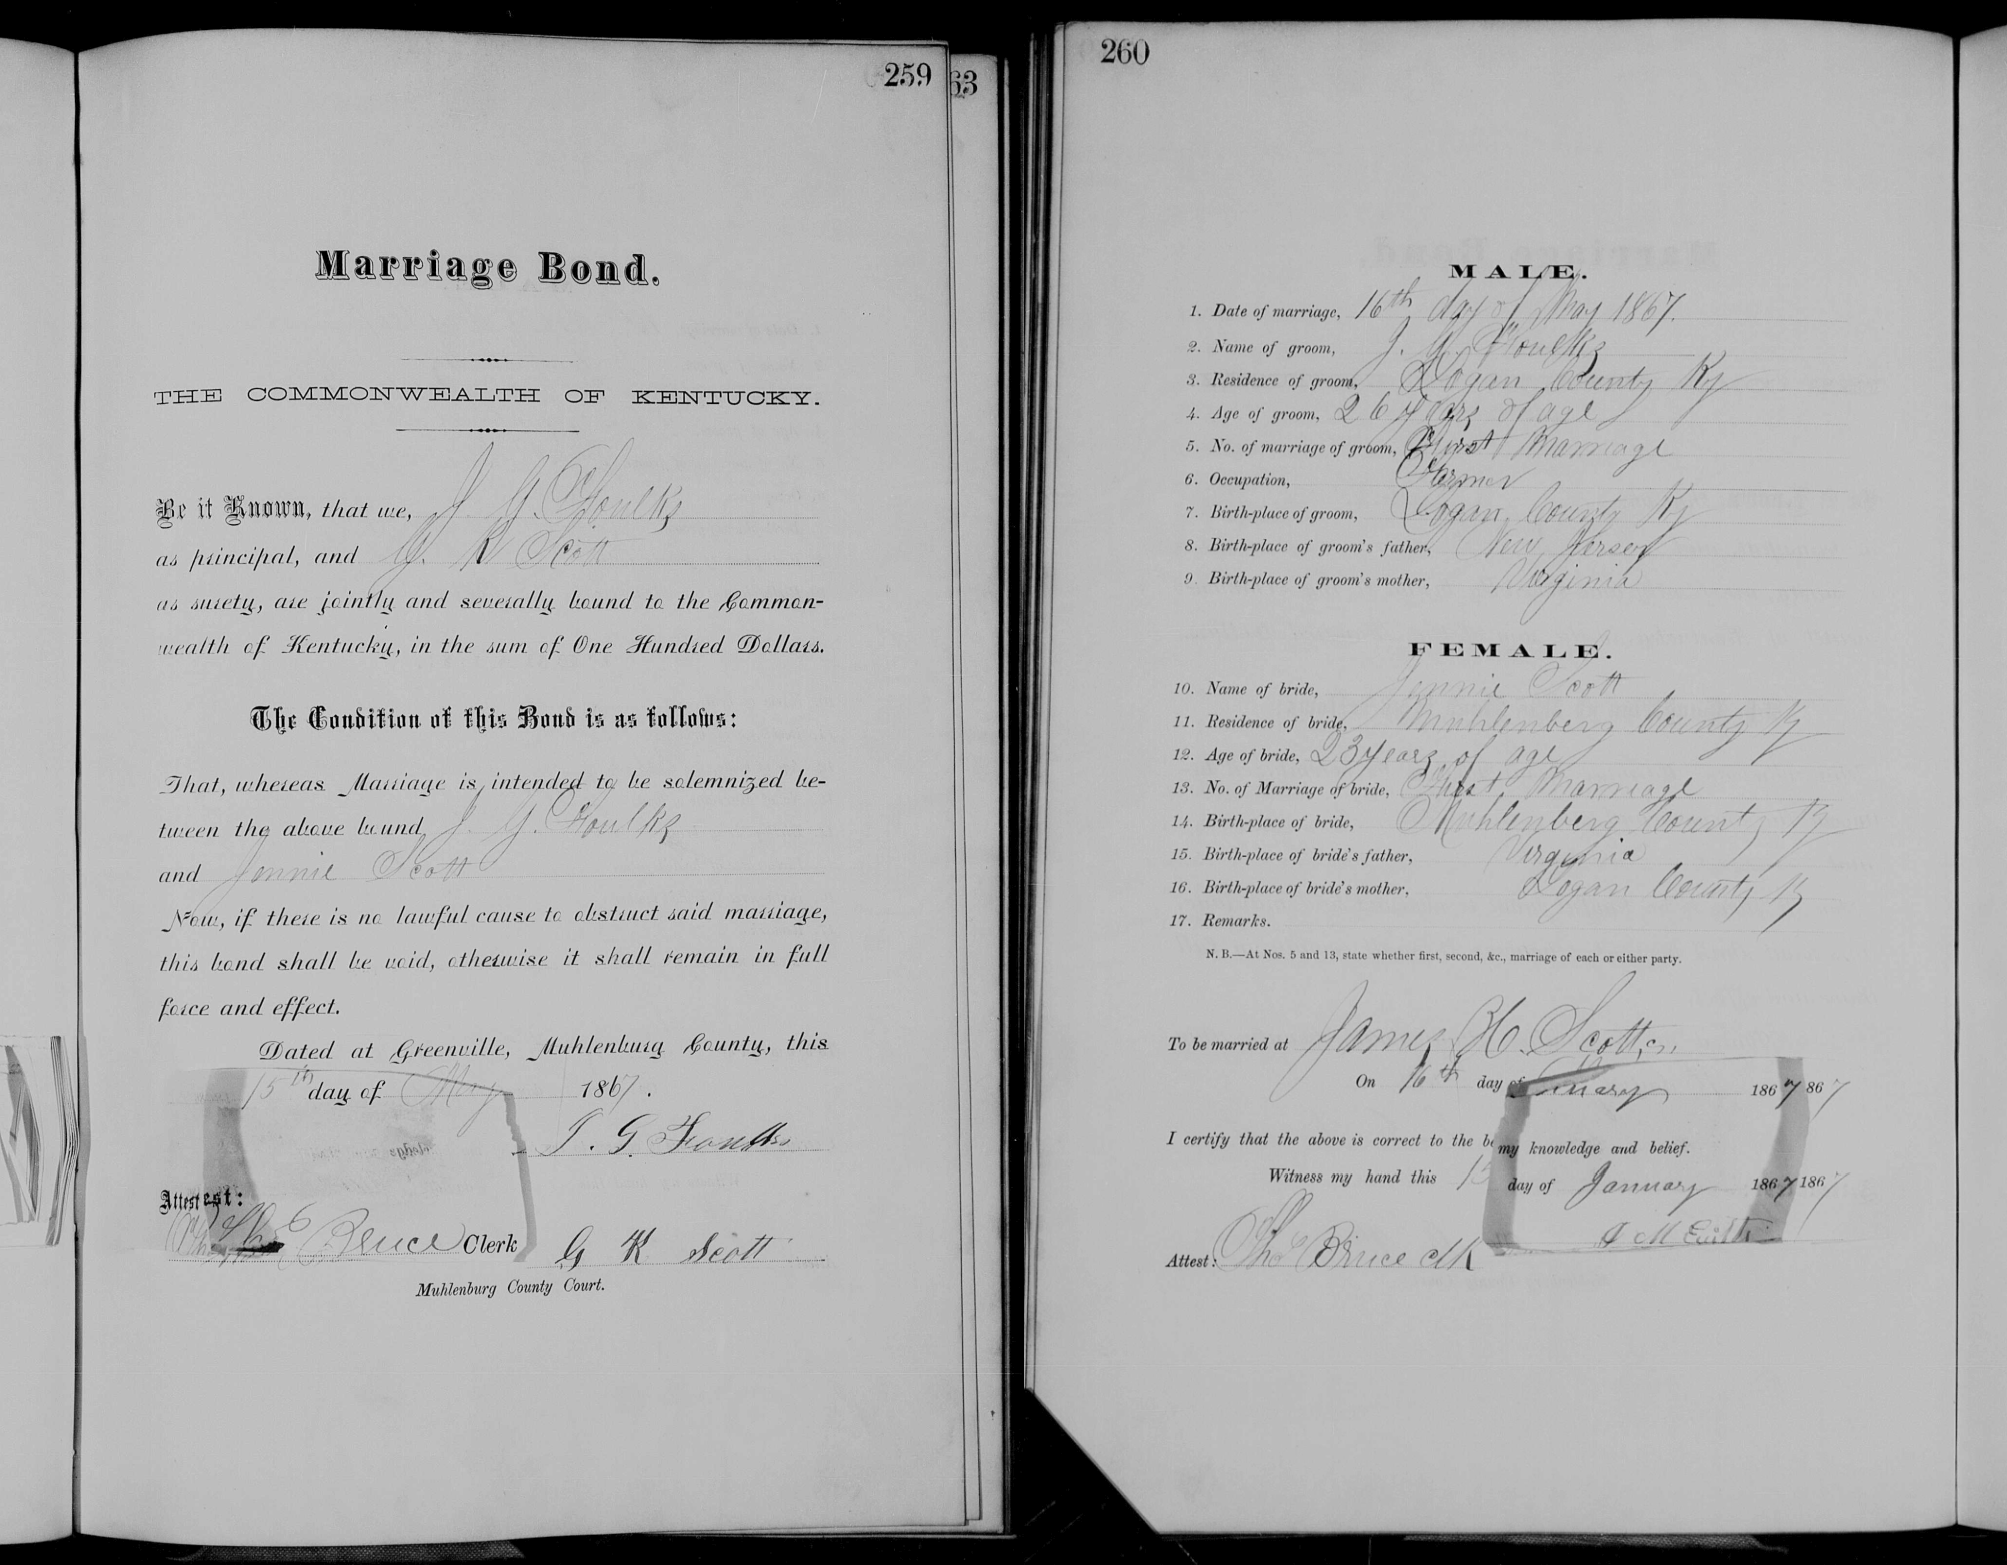 259
63
Marriage Bond.
THE COMMONWEALTH OF KENTUCKY.
Be it Known, that we, J. G. Foulks
as principal, and G. K Scott
as surety, are jointly and severally bound to the Common-
wealth of Kentucky, in the sum of One Hundred Dollars.
The Condition of this Bond is as follows:
That, whereas Marriage is intended to be solemnized be-
tween the above bound J. G. Foulks
and Jennie Scott
Now, if there is no lawful cause to obstruct said marriage,
this bond shall be void, otherwise it shall remain in full
force and effect.
Dated at Greenville, Muhlenburg County, this
15th day of May 1867.
J. G. Foulks
Attest:
Bruce Clerk G K Scott
Muhlenburg County Court.
260
MALE.
1. Date of marriage, 16th day of May 1867.
2. Name of groom, J. G. Foulks
3. Residence of groom, Logan County Ky
4. Age of groom, 26 years of age
5. No. of marriage of groom, First Marriage
6. Occupation, Farmer
7. Birth-place of groom, Logan County Ky
8. Birth-place of groom's father, New Jersey
9. Birth-place of groom's mother, Virginia
FEMALE.
10. Name of bride, Jennie Scott
11. Residence of bride, Muhlenberg County Ky
12. Age of bride, 23 years of age
13. No. of Marriage of bride, First Marriage
14. Birth-place of bride, Muhlenberg County Ky
15. Birth-place of bride's father, Virginia
16. Birth-place of bride's mother, Logan County Ky
17. Remarks.
N. B.—At Nos. 5 and 13, state whether first, second, &c., marriage of each or either party.
To be married at James H. Scott,
On 16th day of 1867 867
I certify that the above is correct to the be my knowledge and belief.
Witness my hand this 15 day of January 1867 1867
Attest: Tho Bruce clk